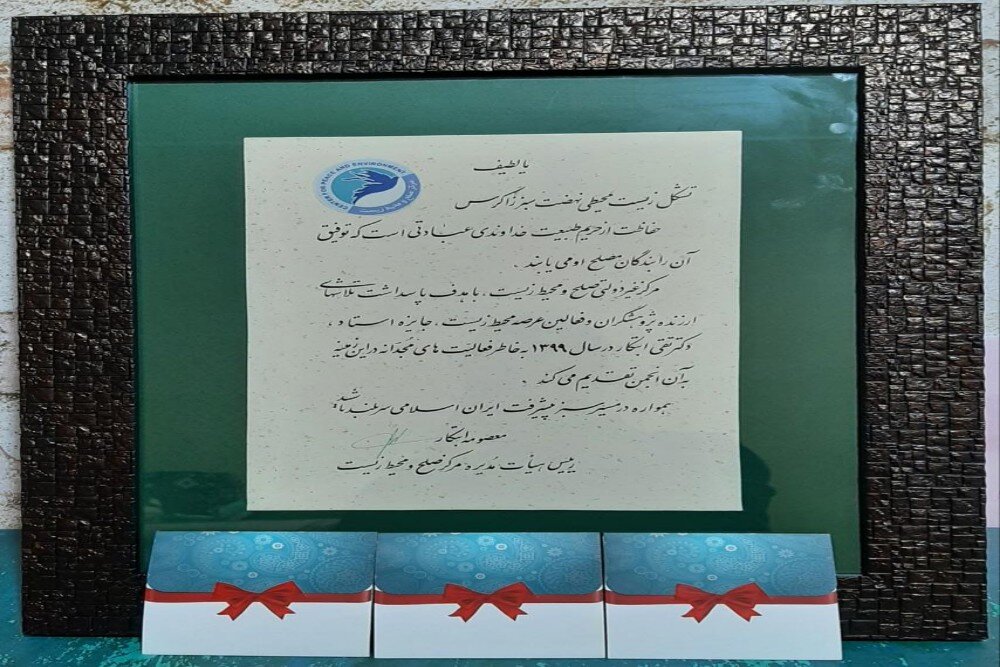 یا لطیف
CENTER FOR PEACE AND ENVIRONMENT
مرکز صلح و محیط زیست
تشکل زیست محیطی نهضت سبز زاگرس
حفاظت از حریم طبیعت خداوندی عبادتی است که توفیق
آن را بندگان مصلح او می یابند .
مرکز غیر دولتی صلح و محیط زیست ، با هدف پاسداشت تلاشهای
ارزنده پژوهشگران و فعالین عرصه محیط زیست ، جایزه استاد ،
دکتر تقی ابتکار در سال ۱۳۹۹ به خاطر فعالیت های مجدانه در این زمینه
به آن انجمن تقدیم می کند .
همواره در مسیر سبز پیشرفت ایران اسلامی سربلند باشید
معصومه ابتکار
رییس هیأت مدیره مرکز صلح و محیط زیست